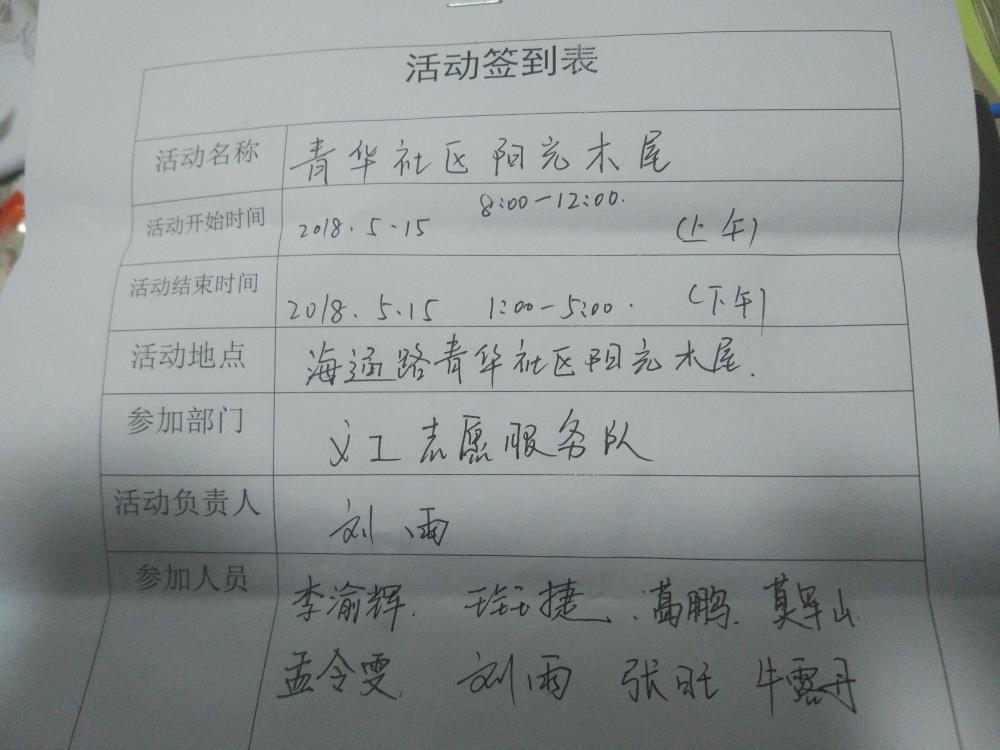 活动签到表
活动名称 青华社区阳光木屋
活动开始时间 2018.5.15 8:00-12:00. (上午)
活动结束时间 2018.5.15 1:00-5:00. (下午)
活动地点 海通路青华社区阳光木屋.
参加部门 义工志愿服务队
活动负责人 刘雨
参加人员 李渝辉. 捷. 葛鹏. 莫军山
孟令雯. 刘雨 张旺 牛露丹